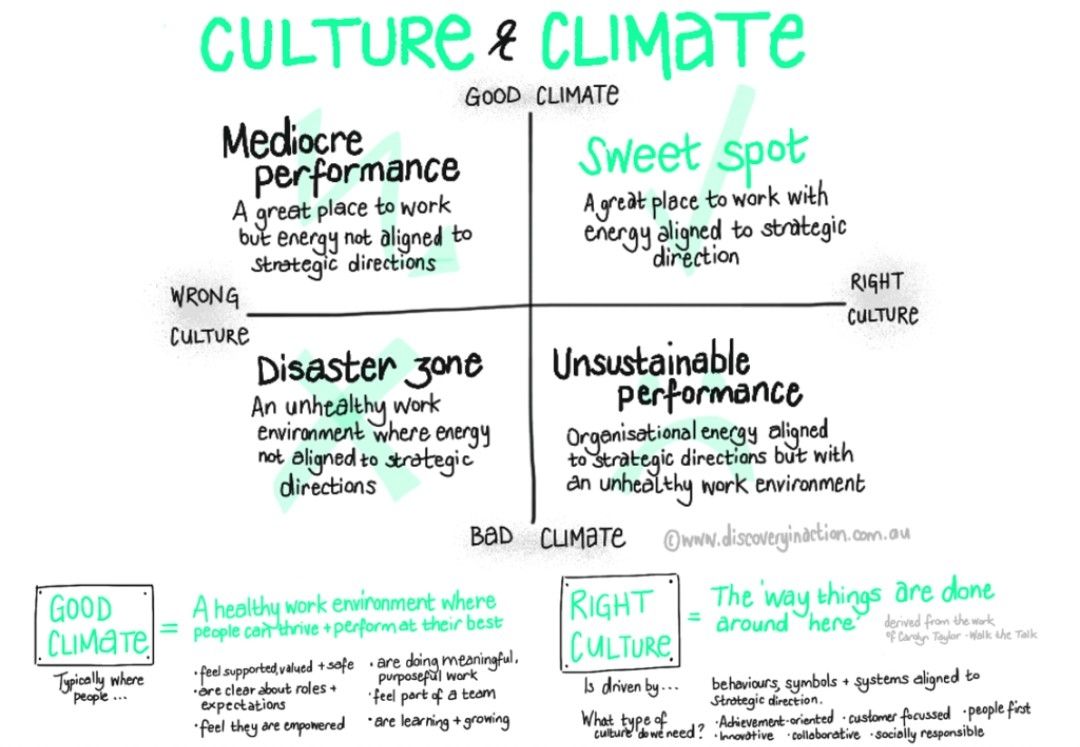 CULTURE & CLIMATE
GOOD CLIMATE
Mediocre
performance
A great place to work
but energy not aligned to
strategic directions
Sweet spot
A great place to work with
energy aligned to strategic
direction
WRONG
CULTURE
RIGHT
CULTURE
Disaster zone
An unhealthy work
environment where energy
not aligned to strategic
directions
Unsustainable
performance
Organisational energy aligned
to strategic directions but with
an unhealthy work environment
BAD CLIMATE
©www.discoveryinaction.com.au
GOOD
CLIMATE
=
A healthy work environment where
people can thrive + perform at their best
Typically where
people ...
• feel supported, valued + safe
• are clear about roles +
expectations
• feel they are empowered
• are doing meaningful,
purposeful work
• feel part of a team
• are learning + growing
RIGHT
CULTURE
=
The 'way things are done
around here'
derived from the work
of Carolyn Taylor - Walk the Talk
Is driven by ...
behaviours, symbols + systems aligned to
strategic direction.
What type of
culture do we need?
• Achievement-oriented • customer focussed • people first
• Innovative • collaborative • socially responsible